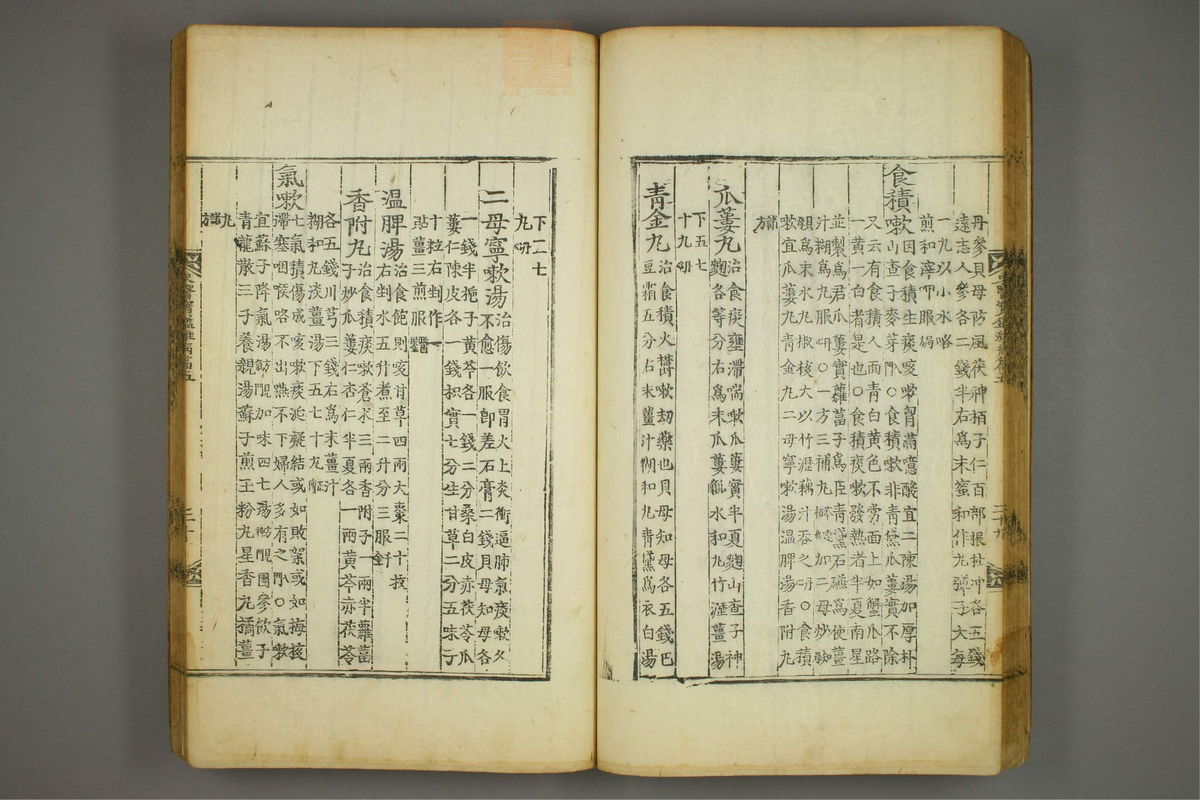 丹參貝母防風茯神栢子仁百部根杜冲各五錢
遠志人參各二錢半右爲末蜜和作丸彈子大每
一丸以水小
煎和滓
食積嗽因食積生痰咳嗽胷滿噫酸宜二陳湯加厚朴
山查子麥芽入門○食積嗽非青黛瓜蔞實不除
又云有食積人面青白黃色不常面上如蟹爪路
一黃一白者是也○食積痰嗽發熱者半夏南星
並製爲君瓜蔞實蘿葍子爲臣青黛石鹻爲使薑
汁糊爲丸服
嗽宜瓜蔞丸青金丸二母寧嗽湯温脾湯香附丸
諸方
瓜蔞丸
治食痰壅滯喘嗽瓜蔞實半夏麴山查子神
麴各等分右爲末瓜蔞瓤水和丸竹瀝薑湯
下五七
十丸
青金丸
治食積火鬱嗽劫藥也貝母知母各五錢巴
豆霜五分右末薑汁糊和丸青黛爲衣白湯
東醫寶鑑雜病篇五
下二七
丸
二母寧嗽湯
治傷飮食胃火上炎衝逼肺氣痰嗽久
不愈一服卽差石膏二錢貝母知母各
一錢半梔子黃芩各一錢二分桑白皮赤茯苓瓜
蔞仁陳皮各一錢枳實七分生甘草二分五味子
十粒右剉作一
貼薑三煎服
温脾湯
治食飽則咳甘草四兩大棗二十枚
右剉水五升煮至二升分三服
香附丸
治食積痰嗽蒼朮三兩香附子一兩半蘿葍
子炒瓜蔞仁杏仁半夏各一兩黃芩赤茯苓
各五錢川芎三錢右爲末薑汁
糊和丸淡薑湯下五七十丸
氣嗽
七氣積傷成咳嗽痰涎凝結或如敗絮或如梅核
滯塞咽喉咯不出嚥不下婦人多有之入門○氣嗽
宜蘇子降氣湯加味四七湯團參飮子
青龍散三子養親湯蘇子煎玉粉丸星香丸橘薑
丸
諸方
東醫寶鑑雜病篇五
三十